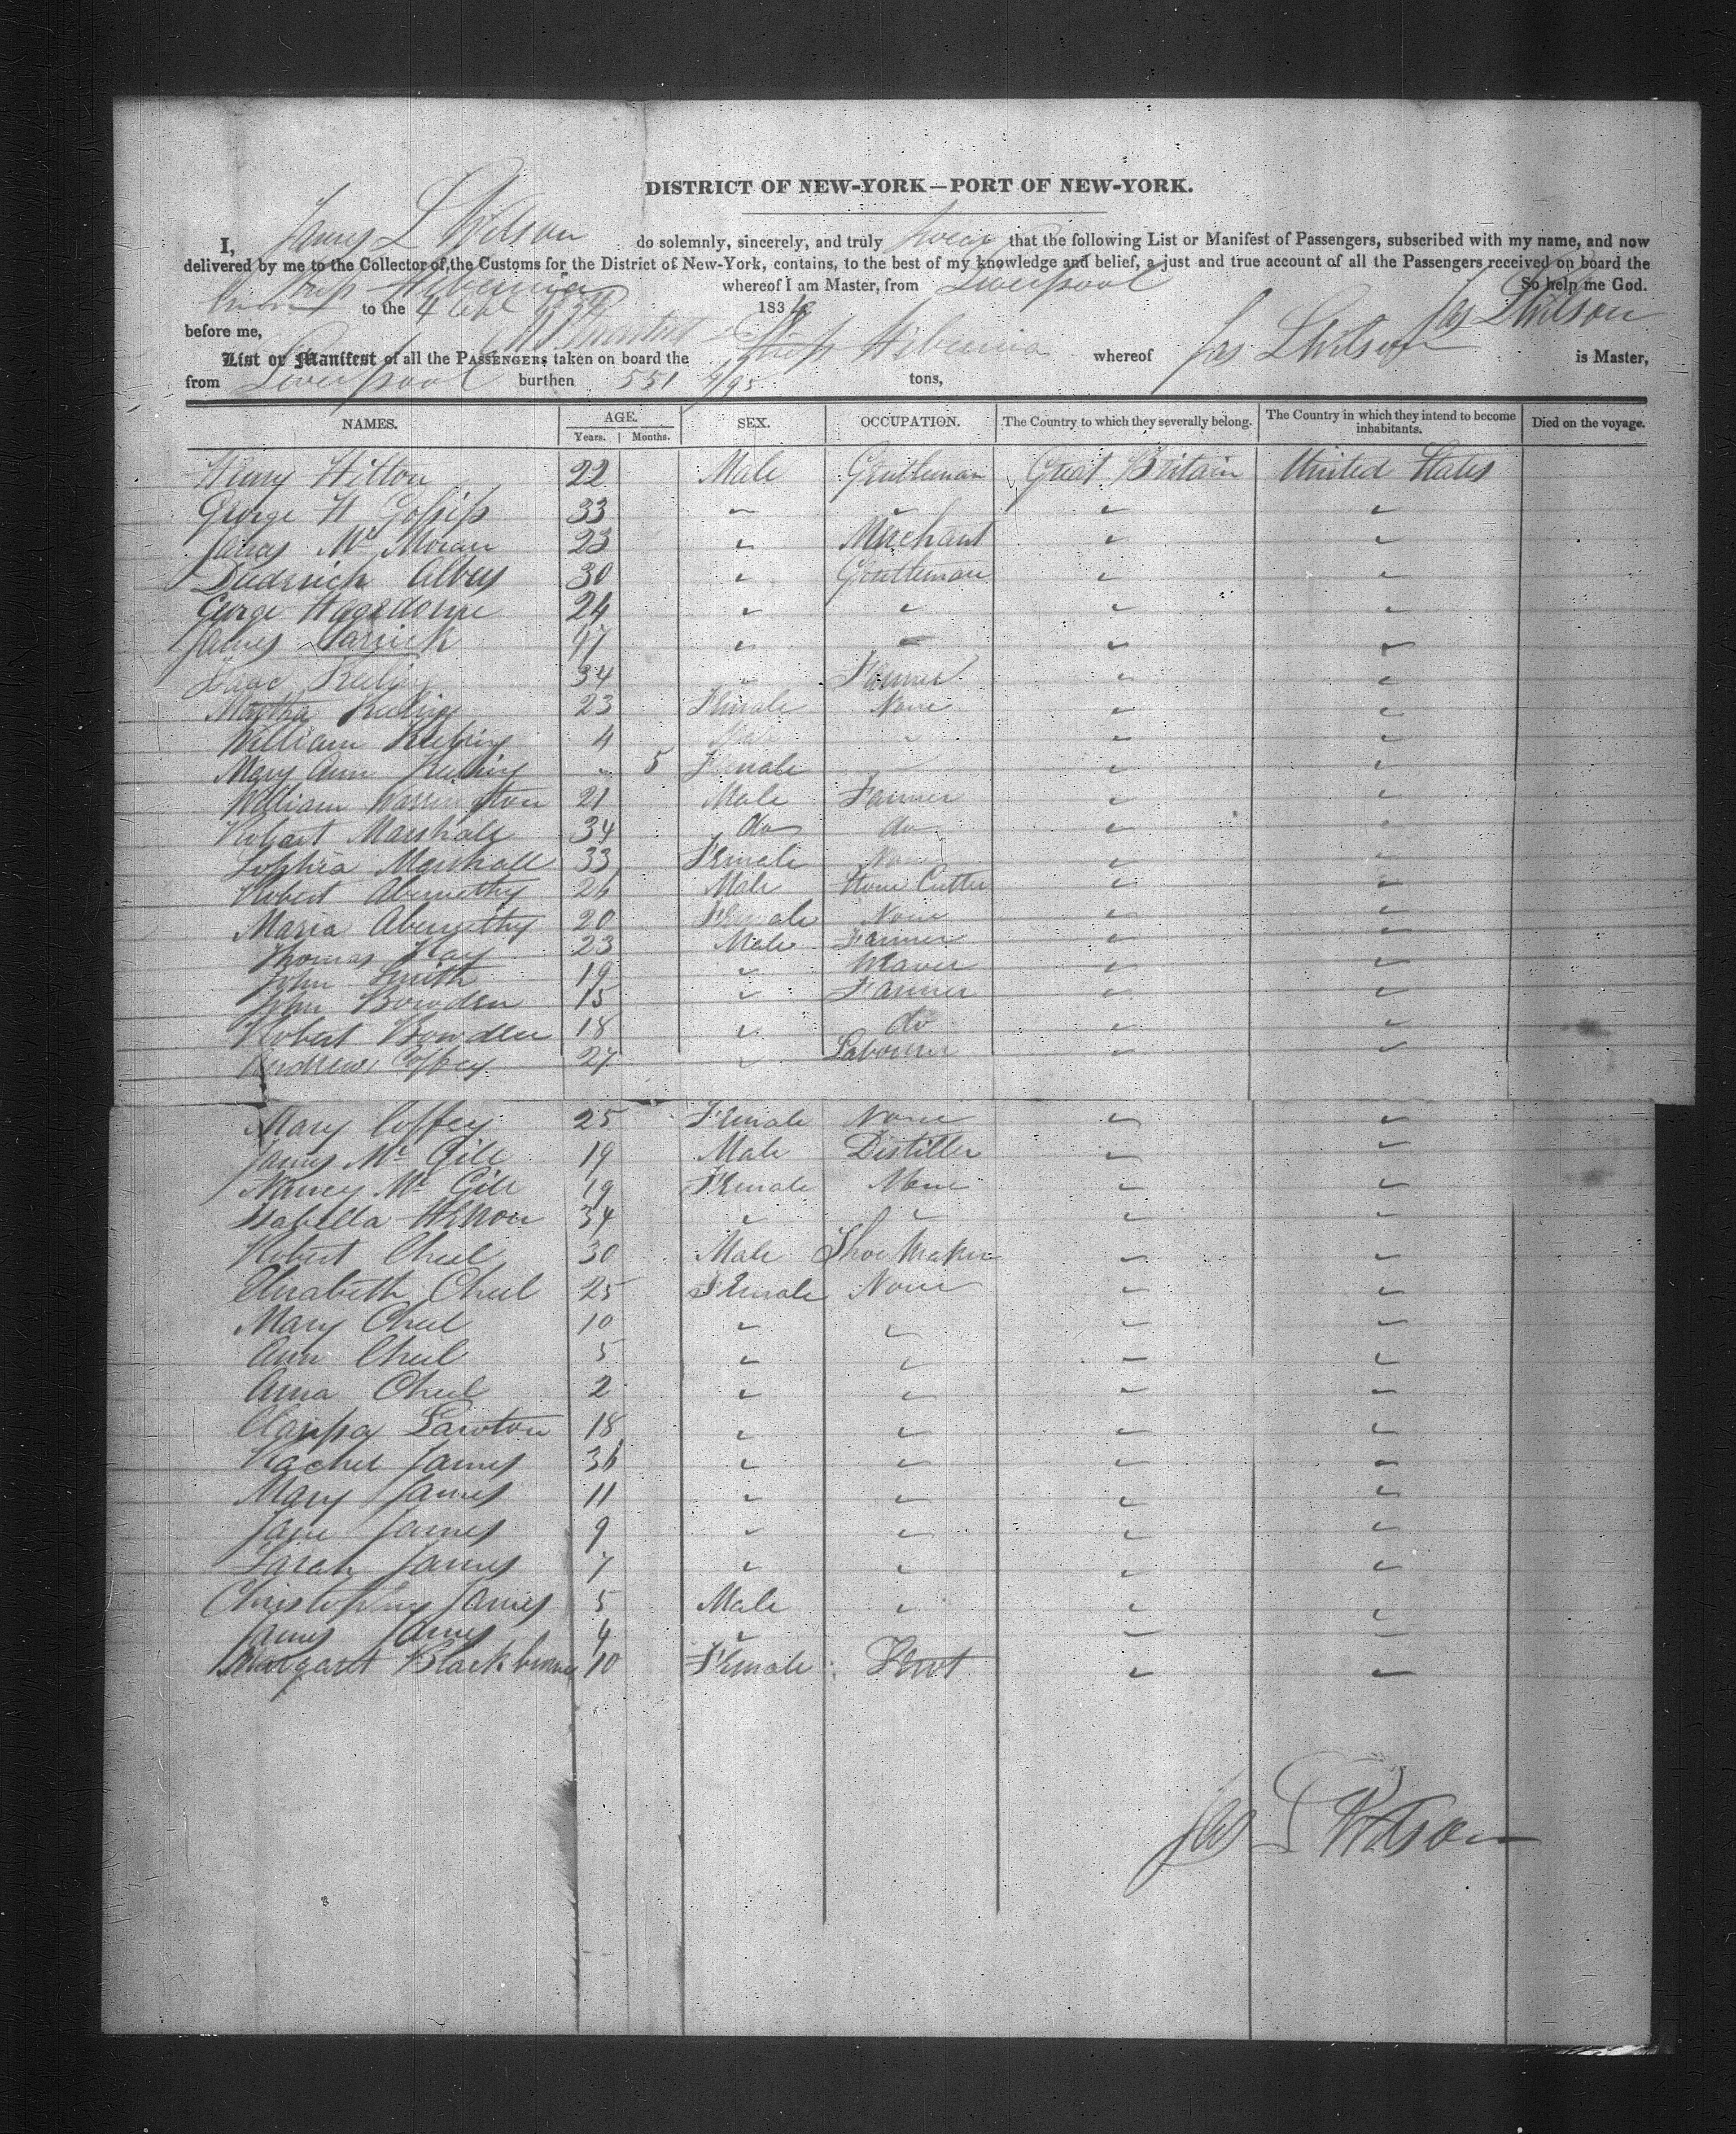 DISTRICT OF NEW-YORK—PORT OF NEW-YORK.
I, James L Wilson do solemnly, sincerely, and truly swear that the following List or Manifest of Passengers, subscribed with my name, and now
delivered by me to the Collector of the Customs for the District of New-York, contains, to the best of my knowledge and belief, a just and true account of all the Passengers received on board the
Ship Hibernia whereof I am Master, from Liverpool So help me God.
to the 4 1834 183 Jas L Wilson
before me,
List or Manifest of all the PASSENGERS taken on board the Ship Hibernia whereof Jas L Wilson is Master,
from Liverpool burthen 551 4/95 tons,
NAMES. AGE. Years. Months. SEX. OCCUPATION. The Country to which they severally belong. The Country in which they intend to become inhabitants. Died on the voyage.
Henry Hilton 22 Male Gentleman Great Britain United States
George H Gossip 33 " " " "
James Mc Moran 23 " Merchant " "
Diedrich Albers 30 " Gentleman " "
George Hagedorne 24 " " " "
James Carrick 47 " " " "
Isaac 34 " Farmer " "
Martha 23 Female None " "
William 4 Male " " "
Mary Ann " 5 Female " " "
William Warrington 21 Male Farmer " "
Robert Marshall 34 do do " "
Sophia Marshall 33 Female None " "
Robert Abernethy 26 Male Stone Cutter " "
Maria Abernethy 20 Female None " "
Thomas Hay 23 Male Farmer " "
John Smith 19 " Weaver " "
John Bowden 15 " Farmer " "
Robert Bowden 18 " do " "
Andrew Coffey 27 " Labourer " "
Mary Coffey 25 Female None " "
James Mc Gill 19 Male Distiller " "
Nancy Mc Gill 19 Female None " "
Isabella 34 " " " "
Robert Cheel 30 Male Shoe Maker " "
Elizabeth Cheel 25 Female None " "
Mary Cheel 10 " " " "
Ann Cheel 5 " " " "
Anna Cheel 2 " " " "
Clarissa Lawton 18 " " " "
Rachel James 36 " " " "
Mary James 11 " " " "
Jane James 9 " " " "
Sarah James 7 " " " "
Christopher James 5 Male " " "
James James 4 " " "
Margaret Blackburne 10 Female " "
Jas L Wilson